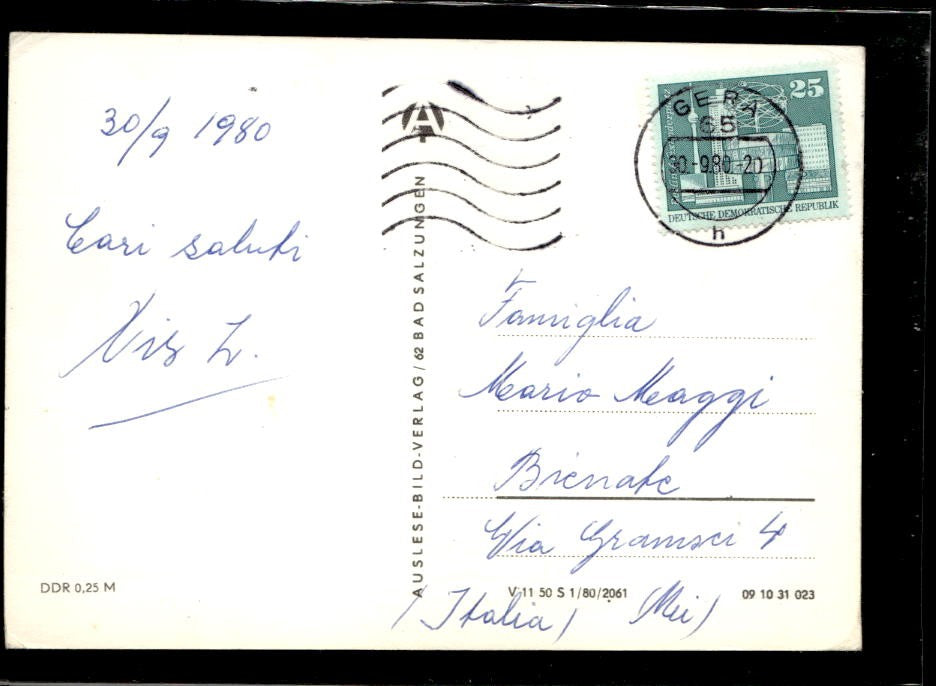 30/9 1980
Cari saluti
DDR 0,25 M
A
AUSLESE-BILD-VERLAG / 62 BAD SALZUNGEN
25
DEUTSCHE DEMOKRATISCHE REPUBLIK
GERA
65
30.-9.80.-20
h
Famiglia
Mario Maggi
Bienate
Via Gramsci 4
(Italia) (Mi)
V 11 50 S 1/80/2061
09 10 31 023